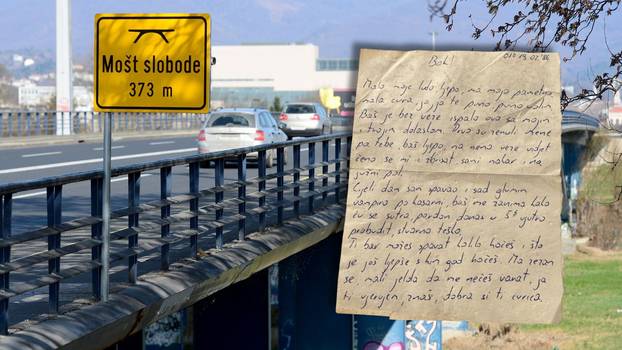 Mošt slobode
373 m
Bok!
Malo moje ludo lijepo, ma moja pametna
mala cura, ja, ja te puno puno volim.
Baš je bez veze ispalo ovo sa mojim
tvojim dolaskom. Prvo su zvali mene
pa tebe, baš lijepo, na nema veze vidjet
ćemo se mi i sami i na
južni pol.
Cijeli dan sam spavao i sad glumim
vampira po kasarni, baš me zanima kako
ću se sutra pardon danas u 5 ujutro
probudit, stvarno teško.
Ti bar možeš spavat koliko hoćeš i što
je još ljepše s kim god hoćeš. Ma zezam
se, mali jelda da me nećeš varat, ja
ti vjerujem, znaš, dobra si ti curica.